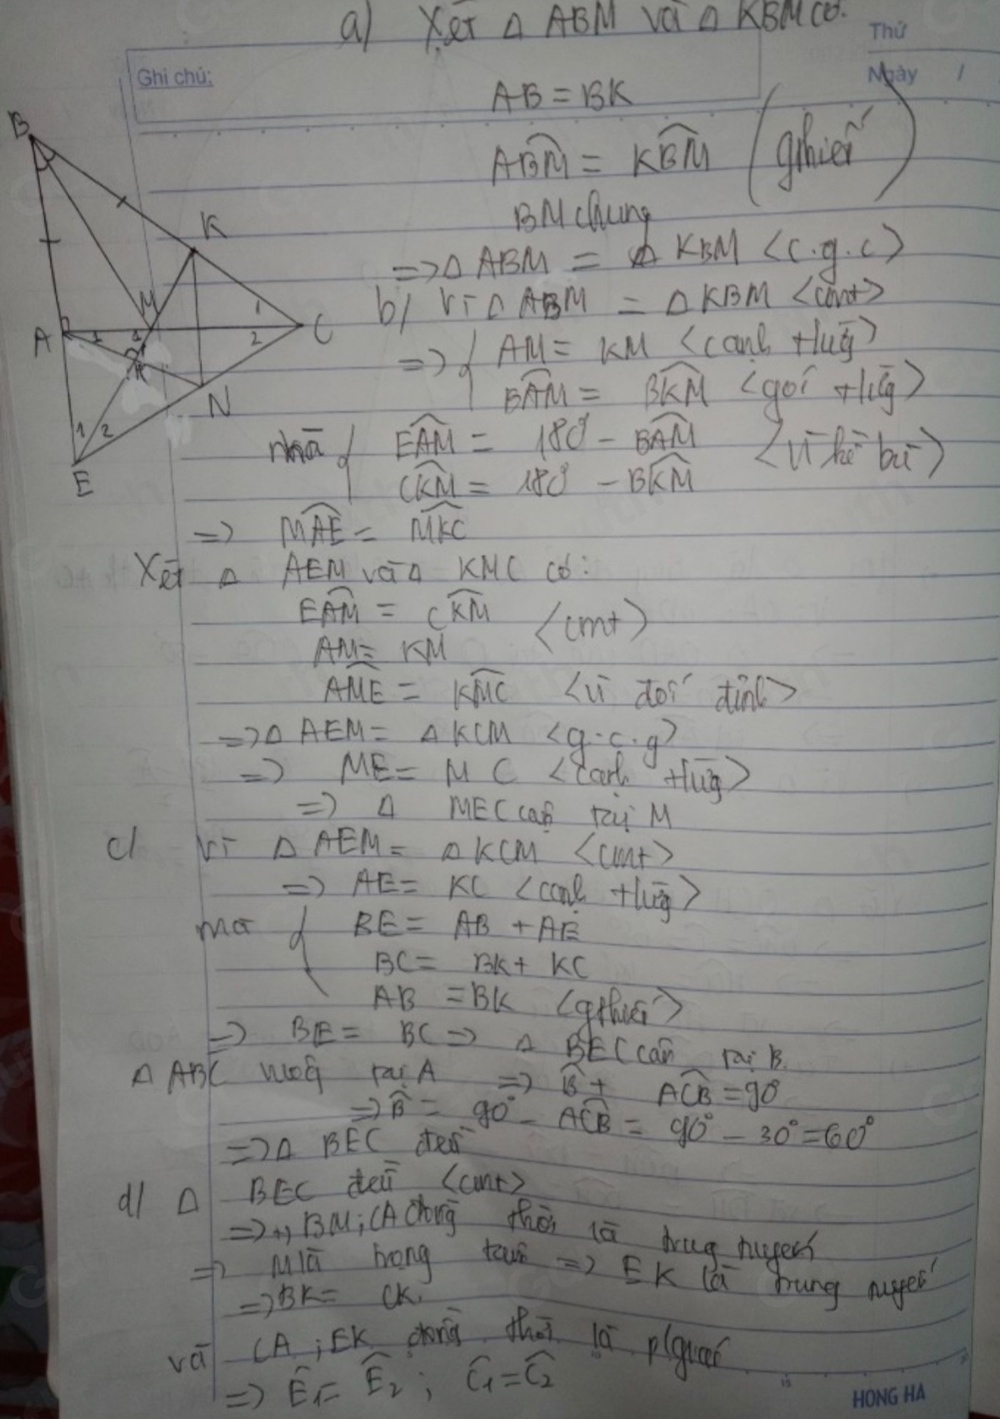 a) Xét △ ABM và △ KBM có:
Thứ
Ghi chú:
Ngày /
AB = BK
ABM = KBM (gthiết)
BM chung
=> △ ABM = △ KBM <c.g.c>
b/ Vì △ ABM = △ KBM <cmt>
=> { AM = KM <cạnh t/ứng>
BAM = BKM <góc t/ứng>
mà { EAM = 180° - BAM <vì kề bù>
CKM = 180° - BKM
=> MAE = MKC
Xét △ AEM và △ KMC có:
EAM = CKM <cmt>
AM = KM
AME = KMC <vì đối đỉnh>
=> △ AEM = △ KCM <g.c.g>
=> ME = MC <cạnh t/ứng>
=> △ MEC cân tại M
c/ Vì △ AEM = △ KCM <cmt>
=> AE = KC <cạnh t/ứng>
mà { BE = AB + AE
BC = BK + KC
AB = BK <gthiết>
=> BE = BC => △ BEC cân tại B.
△ ABC vuông tại A => B + ACB = 90°
=> B = 90° - ACB = 90° - 30° = 60°
=> △ BEC đều
d/ △ BEC đều <cmt>
=> BM; CA đồng thời là trung tuyến
=> M là trọng tâm => EK là trung tuyến
=> BK = CK.
và CA; EK đồng thời là p/giác
=> E1 = E2 ; C1 = C2
B
K
M
A
C
N
E
1
2
1
2
1
HONG HA